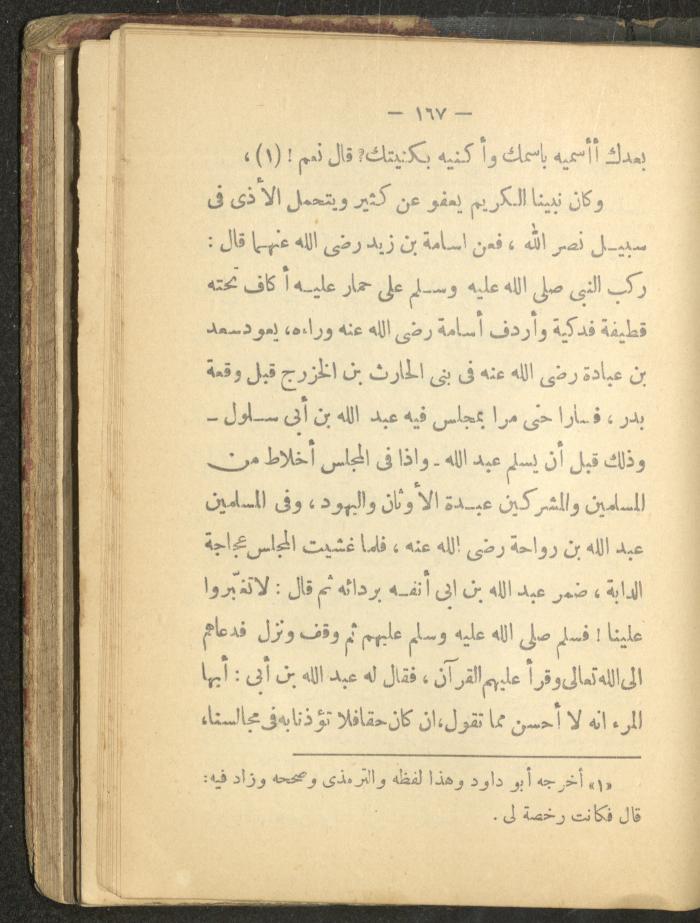 — ١٦٧ —
بعدك أأسميه باسمك وأكنيه بكنيتك؟ قال نعم ! (١) ،
وكان نبينا الكريم يعفو عن كثير ويتحمل الأذى فى
سبيل نصر الله ، فعن اسامة بن زيد رضى الله عنهما قال :
ركب النبى صلى الله عليه وسلم على حمار عليه أكاف تحته
قطيفة فدكية وأردف أسامة رضى الله عنه وراءه، يعود سعد
بن عبادة رضى الله عنه فى بنى الحارث بن الخزرج قبل وقعة
بدر ، فسارا حتى مرا بمجلس فيه عبد الله بن أبى سلول ـ
وذلك قبل أن يسلم عبد الله ـ واذا فى المجلس أخلاط من
المسلمين والمشركين عبدة الأوثان واليهود ، وفى المسلمين
عبد الله بن رواحة رضى الله عنه ، فلما غشيت المجلس عجاجة
الدابة ، ضمر عبد الله بن ابى أنفه بردائه ثم قال : لاتغبّروا
علينا ! فسلم صلى الله عليه وسلم عليهم ثم وقف ونزل فدعاهم
الى الله تعالى وقرأ عليهم القرآن ، فقال له عبد الله بن أبى : أيها
المرء انه لا أحسن مما تقول، ان كان حقا فلا تؤذنا به فى مجالسنا،
«١» أخرجه أبو داود وهذا لفظه والترمذى وصححه وزاد فيه:
قال فكانت رخصة لى .